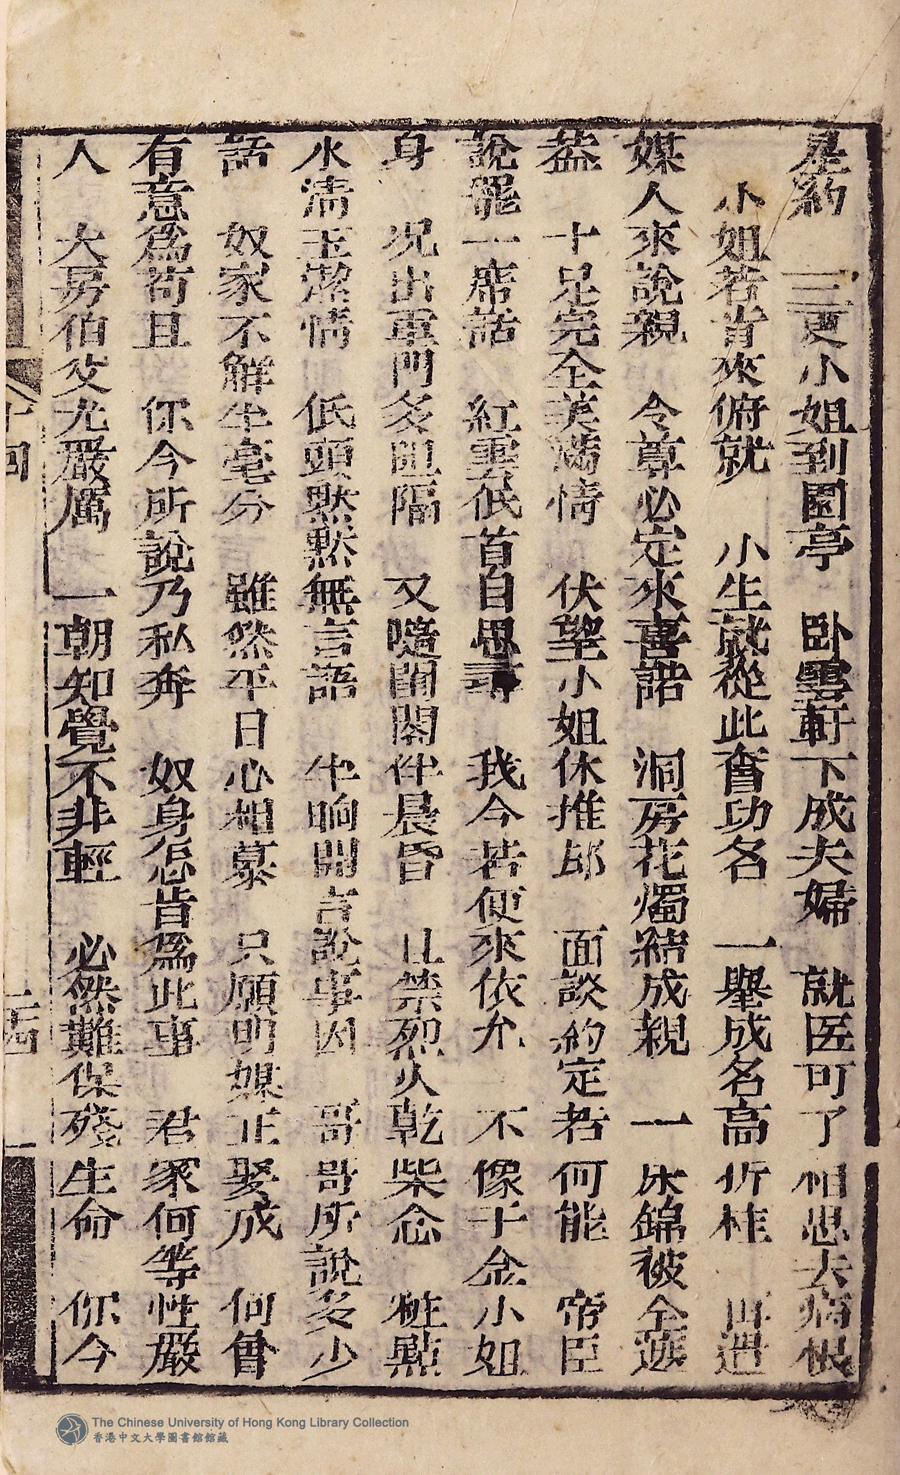 是約　三更小姐到園亭　卧雲軒下成夫婦　就医可了相思去病恨
小姐若肯來俯就　小生就從此奮功名　一舉成名高折桂　再遇
媒人來說親　令尊必定來喜諾　洞房花燭結成親　一床錦被全遮
盖　十足完全美滿情　伏望小姐休推却　面談約定若何能　帝臣
說罷一席話　紅雲低首自思尋　我今若便來依允　不像千金小姐
身　况出重門多阻隔　又嘵閨閣伴晨昏　且禁烈火乾柴念　粧點
水淸玉潔情　低頭黙黙無言語　半晌開言說事因　哥哥所說多少
話　奴家不解半毫分　雖然平日心相慕　只願明媒正娶成　何曾
有意爲苟且　你今所說乃私奔　奴身怎肯爲此事　君家何等性嚴
人　大房伯父尤嚴厲　一朝知覺不非輕　必然難保殘生命　你今
十回
二四
The Chinese University of Hong Kong Library Collection
香港中文大學圖書館館藏